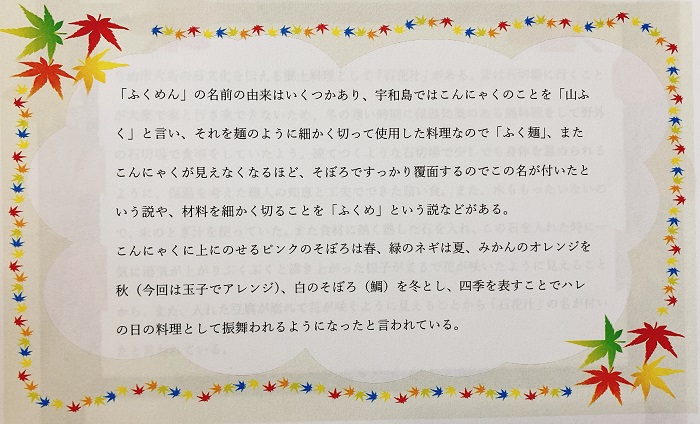 「ふくめん」の名前の由来はいくつかあり、宇和島ではこんにゃくのことを「山ふ
く」と言い、それを麺のように細かく切って使用した料理なので「ふく麺」、また
こんにゃくが見えなくなるほど、そぼろですっかり覆面するのでこの名が付いたと
いう説や、材料を細かく切ることを「ふくめ」という説などがある。
こんにゃくに上にのせるピンクのそぼろは春、緑のネギは夏、みかんのオレンジを
秋（今回は玉子でアレンジ）、白のそぼろ（鯛）を冬とし、四季を表すことでハレ
の日の料理として振舞われるようになったと言われている。